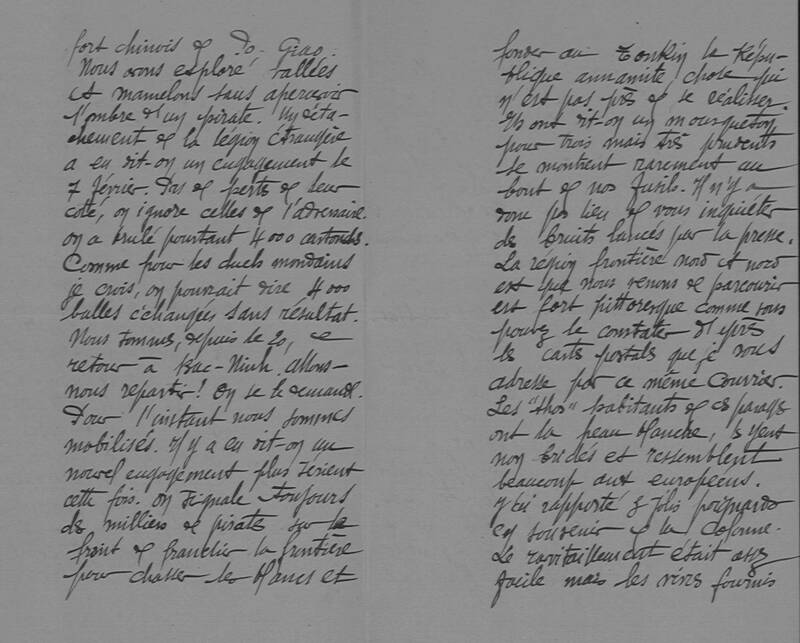 fort chinois de Do-Giao.
Nous avons exploré vallées
et mamelons sans apercevoir
l'ombre d'un pirate. Un déta-
chement de la légion étrangère
a eu dit-on un engagement le
7 février. Pas de perte de leur
côté, on ignore celles de l'adversaire.
on a brulé pourtant 4000 cartouches.
Comme pour les duels mondains
je crois, on pourrait dire 4000
balles échangées sans résultat.
Nous sommes, depuis le 20, de
retour à Bac-Ninh. Allons-
nous repartir! On se le demande.
Pour l'instant nous sommes
mobilisés. Il y a eu dit-on un
nouvel engagement plus
cette fois. On signale toujours
des milliers de pirates sur le
point de franchir la frontière
pour chasser les blancs et
fonder au Tonkin la Répu-
blique annamite chose qui
n'est pas près de se réaliser.
Ils ont dit-on un mousqueton
pour trois mais très prudents
se montrent rarement au
bout de nos fusils. Il n'y a
donc pas lieu de vous inquiéter
des bruits lancés par la presse.
La région frontière nord et nord
est que nous venons de parcourir
est fort pittoresque comme vous
pouvez le constater d'après
les cartes postales que je vous
adresse par ce même courrier.
Les "thos" habitants de ces parages
ont la peau blanche, les yeux
non bridés et ressemblent
beaucoup aux européens.
J'ai rapporté 2 jolis poignards
en souvenir de la colonne.
Le ravitaillement était assez
facile mais les vivres fournis